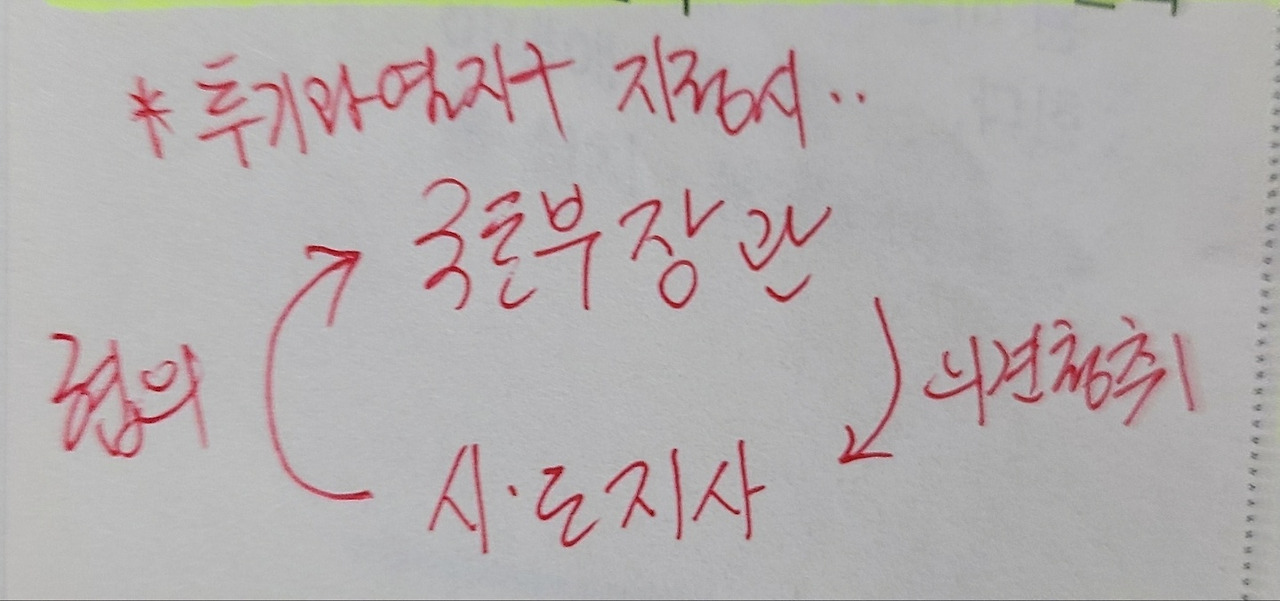 * 투기과열지구 지정시..
국토부장관
협의
의견청취
시·도지사